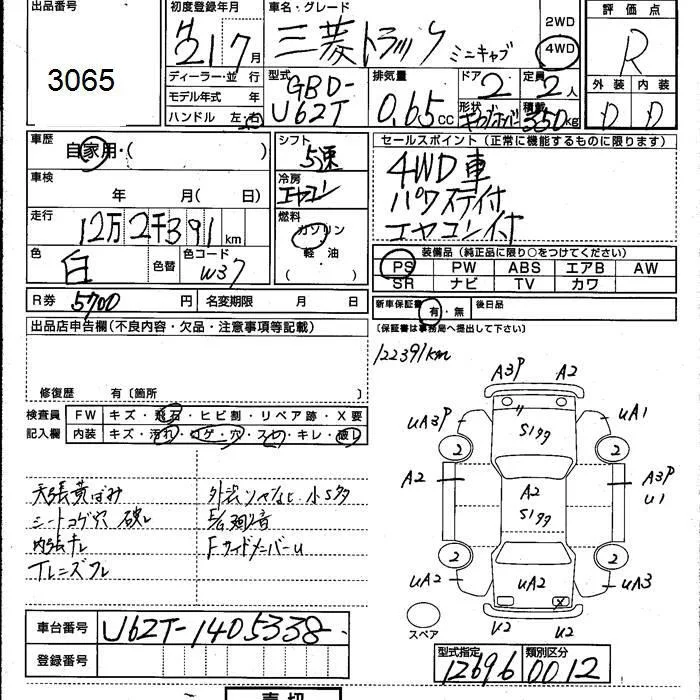 出品番号
3065
初度登録年月
21 7月
ディーラー・並行
モデル年式 年
ハンドル 左・右
車名・グレード
三菱トラック ミニキャブ
2WD
4WD
型式
GBD-
U62T
排気量
0.65cc
ドア
2
定員
2人
形状
積載
350kg
評価点
R
外装 内装
D D
車歴
自家用・( )
車検
年 月( 日)
走行
12万2千391km
色
白
色替
色コード
W37
シフト
5速
冷房
エヤコン
燃料
ガソリン
軽・油
( )
セールスポイント(正常に機能するものに限ります)
4WD車
パワステ付
エヤコン付
装備品(純正品に限り○をつけてください)
PS PW ABS エアB AW
SR ナビ TV カワ
R券 5700円 名変期限 月 日
新車保証書 有・無 後日品
(保証書は事務局へ提出して下さい)
出品店申告欄(不良内容・欠品・注意事項等記載)
修復歴 有〔箇所 〕
検査員
記入欄
FW キズ・飛石・ヒビ割・リペア跡・X要
内装 キズ・汚れ・コゲ・穴・スレ・キレ・破レ
天張黄ばみ
シートコゲ穴 破レ
内張キレ
外装ツヤなく 小Sタタ
FサイドメンバーU
122391km
A3P A2
UA3P UA1
S1タタ
2 2
A2 A3P
U1
A2
S1タタ
2 2
UA2 UA2 UA3
X
U2 U2
スペア
車台番号 U62T-1405338
登録番号
型式指定 類別区分
12696 0012
売切